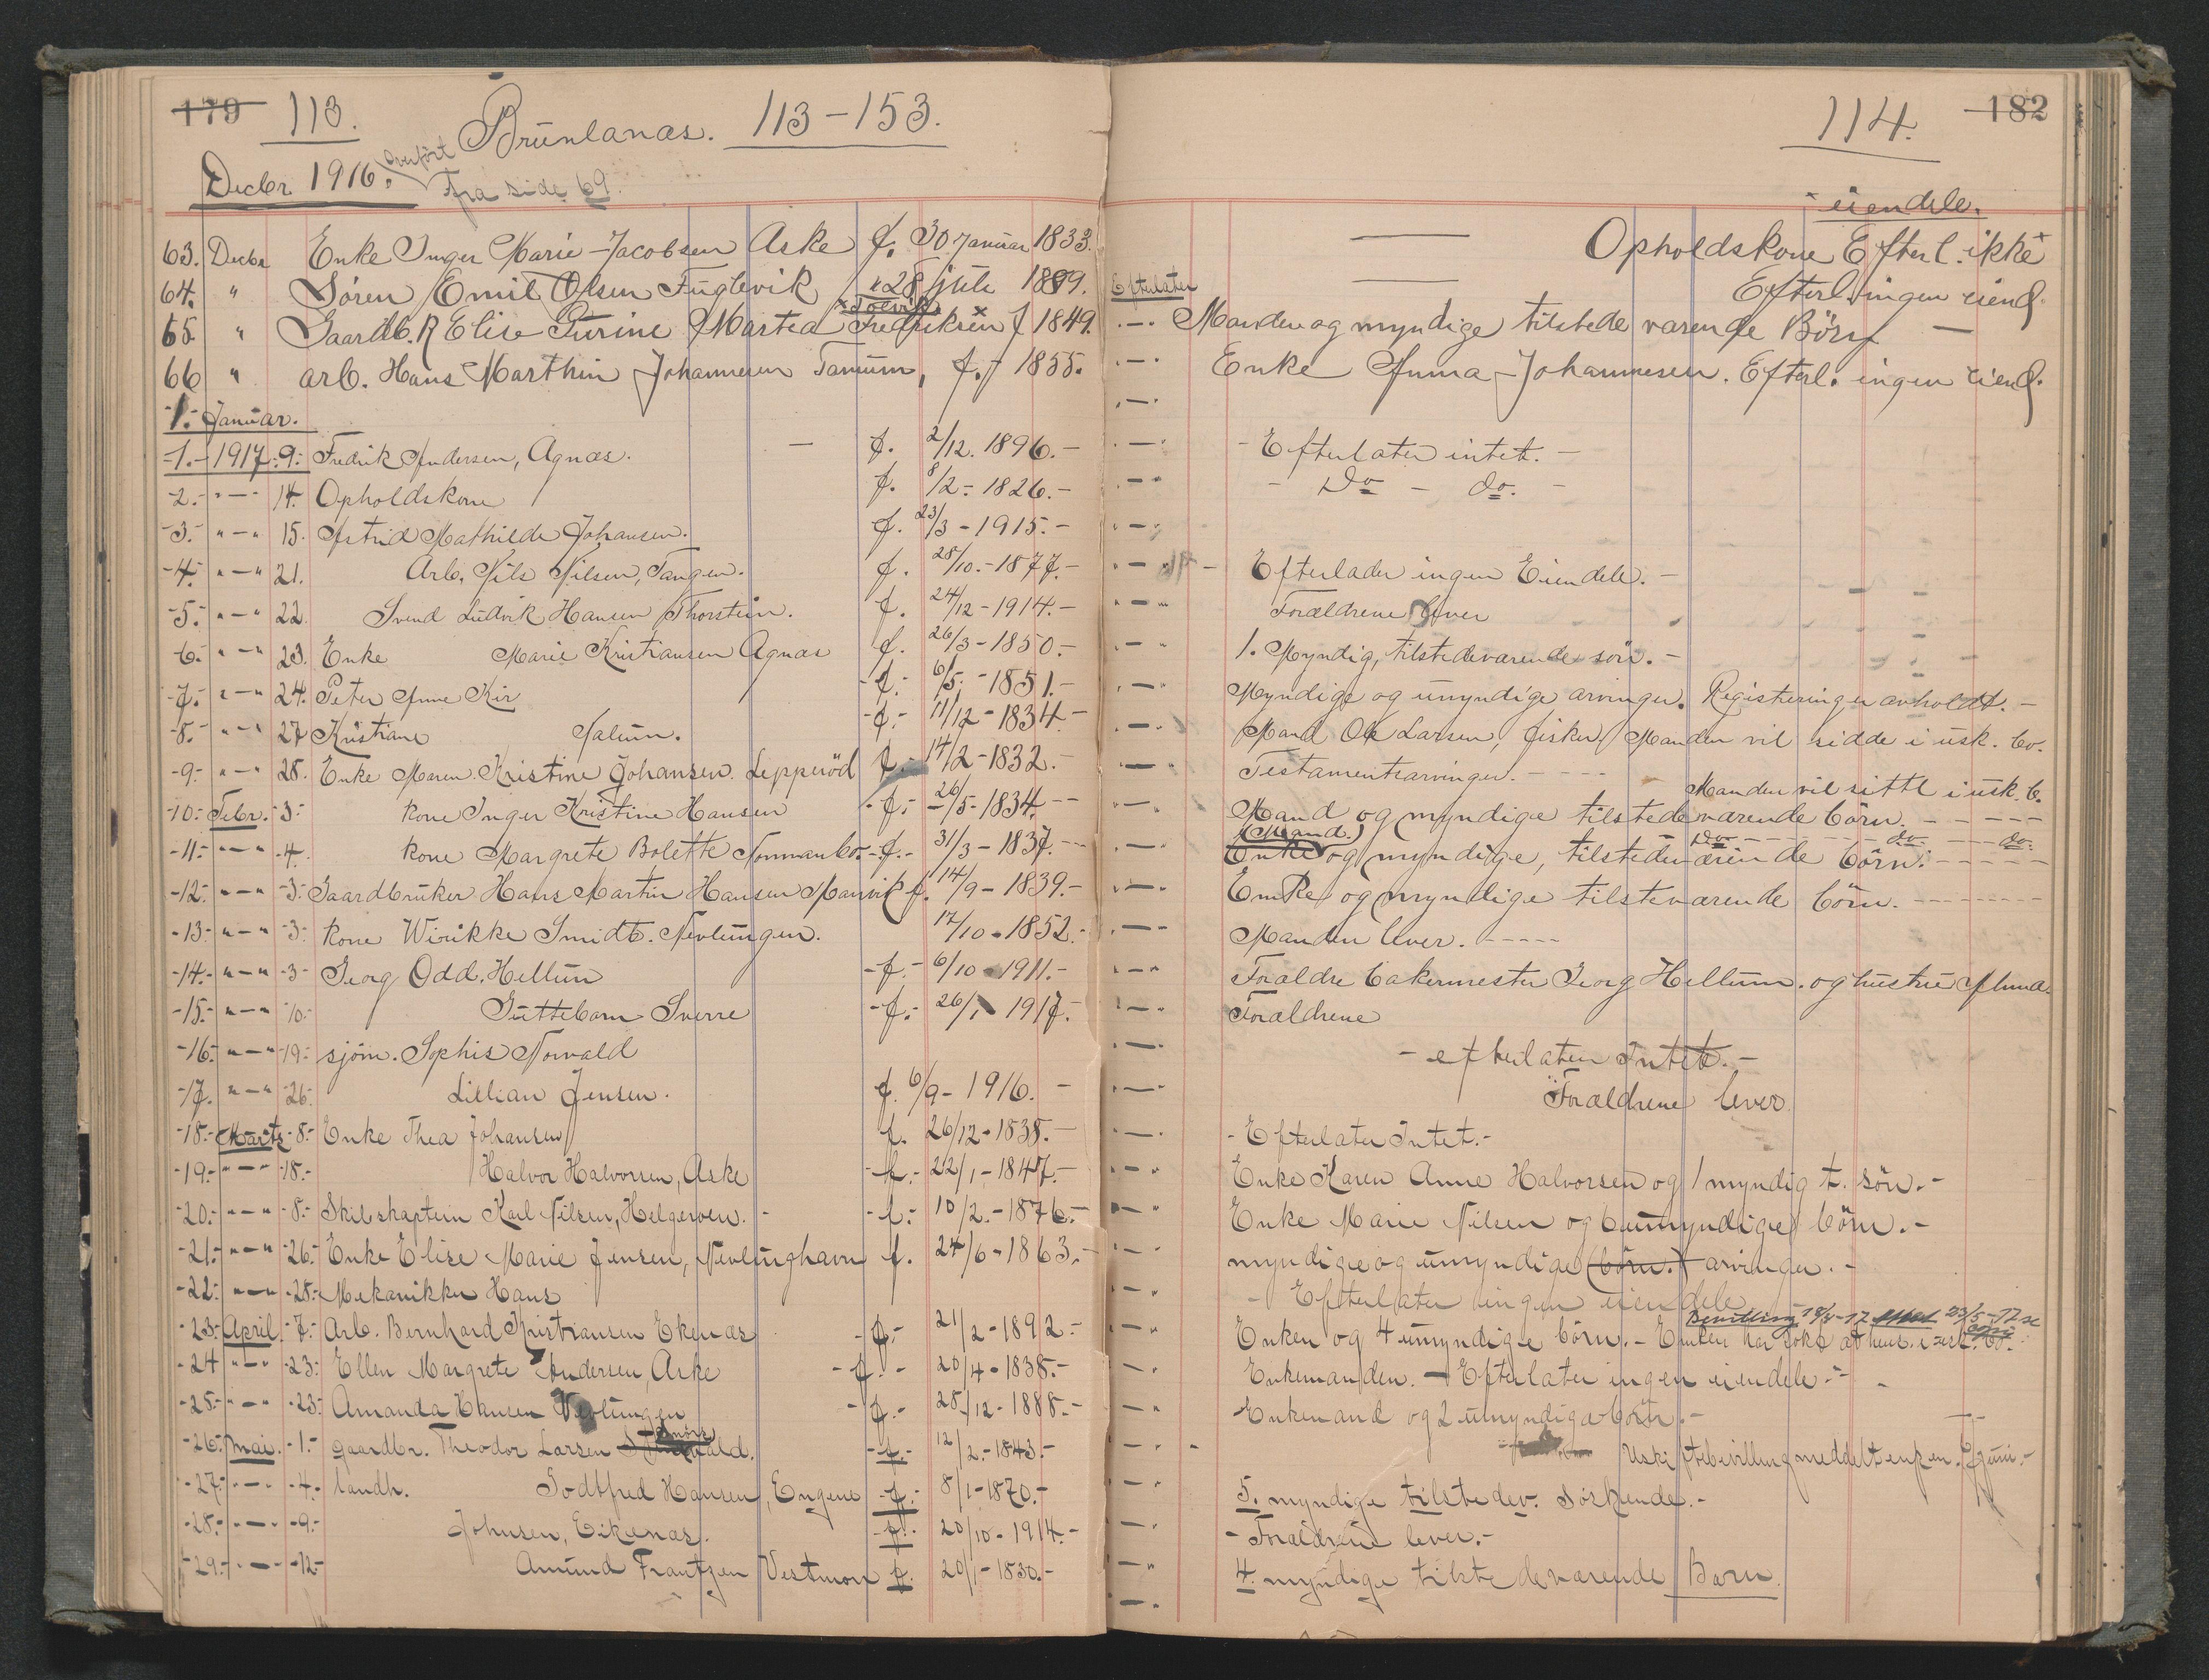 179 113. Brunlanæs. 113-153.
Decbr 1916. overført fra side 69.
63. Decbr Enke Inger Marie Jacobsen Aske f. 30 Januar 1833.
64. " Søren Emil Olsen Fuglevik *28 juli 1889.
65. " Gaardb. Elise Turine Martea Fredriksen f 1849.
66 " arb. Hans Marthin Johannesen Tanum, f. 1855.
-1.- Januar.
-1.- 1917.-9.- Fredrik Andersen, Agnæs. f. 2/12. 1896.-
-2.- "-" 14. Opholdskone f. 8/2- 1826.-
-3.- "-" 15. Astrid Mathilde Johansen. f. 23/3-1915.-
-4.- "-" 21. Arb. Nils Nilsen, Tangen. f. 28/10.-1877.-
-5.- "-" 22. Svend Ludvik Hansen Thorstein. f. 24/12-1914.-
-6.- "-" 23. Enke Marie Kristiansen Agnæs f. 26/3-1850.-
-7.- "-" 24. Peter Anne Kir -f.- 6/5.-1851.-
-8.- "-" 27 Kristiane Nalum. -f.- 11/12-1834-
-9.- "-" 28. Enke Maren Kristine Johansen. Lepperød f.- 14/2-1832.-
-10.- Febr. -3.- kone Inger Kristine Hansen -f.- 26/5-1834.--
-11.- "-" -4. kone Margrete Bolette Nommanbo. -f.- 31/3-1837.--
-12.- "-" -3.- Gaardbruker Hans Martin Hansen Manvik f. 14/9-1839.-
-13.- "-" -3.- kone Wirikke Smidt. Nevlungen. 17/10-1852.-
-14.- "-" -3- Georg Odd. Hellum -f.- 6/10-1911.-
-15.- "-" -10.- Guttebarn Sverre -f.- 26/1 1917.-
-16.- "-" -19.- sjøm. Sophis Norvald
-17. "-" -26.- Lillian Jensen. f. 6/9-1916.-
-18.- Marts -8.- Enke Thea Johansen f. 26/12-1838.-
-19.- "-" -18.- Halvor Halvorsen, Aske -f.- 22/1-1847.-
-20.- "-" -8.- Skibskaptein Karl Nilsen, Helgeroen. -f.- 10/2.-1876.-
-21.- "-" -26.- Enke Elise Marie Jensen, Nevlunghavn f. 24/6-1863.-
-22.- "-" -28.- Mekanikker Hans
-23.- April. -7.- Arb. Bernhard Kristiansen Ekenæs -f.- 21/2-1892.-
-24 "-" -23.- Ellen Margrete Andersen, Aske -f.- 20/4-1838.-
-25.- "-" -23.- Amanda Hansen Nevlungen -f.- 28/12-1888.-
-26.- Mai. -1.- gaardbr. Theodor Larsen -f.- 12/2.-1843.-
-27.- "-" -4.- landh. Godtfred Hansen, Engene -f.- 8/1-1870.-
-28.- "-" -9.- Johnsen, Eikenæs. -f.- 20/10-1914.-
-29.- "-" -12- Amund Frantzen Vestmon f. 20/1-1830.-
114. 182
eiendele.
Opholdskone Efterl. ikke
Efterlater Efterl. ingen eiend.
Manden og myndige tilstedeværende Børn
Enke Anna Johannesen. Efterl. ingen eiend.
-Efterlater intet.-
- Do - do. -
Efterlader ingen Eiendele.-
Forældrene lever
1. Myndig, tilstedeværende søn.-
Myndige og umyndige arvinger. Registreringen avholdt.-
Mand Ole Larsen, fisker. Manden vil sidde i usk. bo.
Testamentsarvinger.-
Manden vil sitte i usk. b.
Mand og myndige tilstedeværende børn.-
(Mand.) Do do do.
Enke og myndige, tilstedeværende børn.-
Enke og myndige tilsteværende børn.
Manden lever.-
Forældre bakermester Georg Hellum. og hustru
Forældrene
-efterlater Intet.-
Forældrene lever
-Efterlater Intet.-
Enke Karen Anne Halvorsen og 1 myndig t. søn.-
Enke Marie Nilsen og 6 umyndige børn.-
myndige og umyndige (børn.) arvinger.-
- Efterlater ingen eiendele
Bevilling 18/4-17 23/5-17
Enken og 4 umyndige børn.- Enken har søkt at hens. i usk. bo.
Enkemanden.- Efterlater ingen eiendele.-
Enkemand og 2 umyndige børn.-
Uskiftebevilling meddelt enken. juni.-
5. myndige tilstedev. søskende.-
-Forældrene lever.-
4. myndige tilstedeværende Barn.